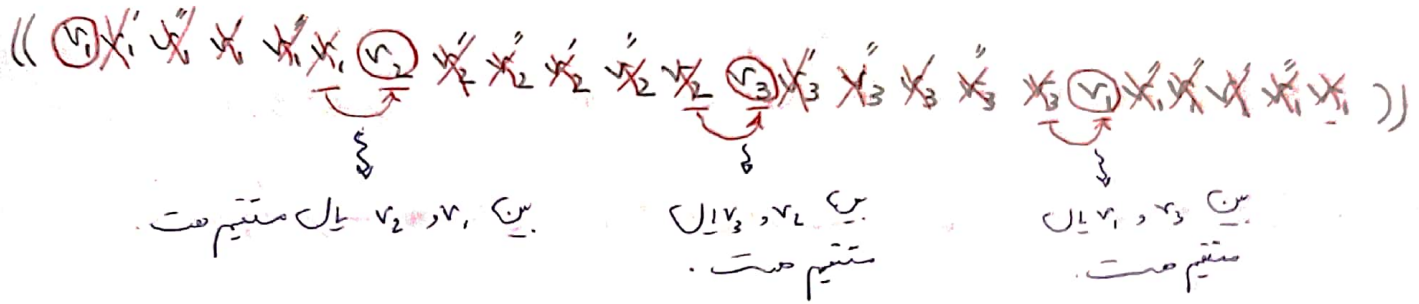 (( v₁ v₁' v₁'' v₁' v₁'' v₁ v₂ v₂' v₂'' v₂' v₂'' v₂ v₃ v₃'' v₃'' v₃' v₃'' v₃ v₁ v₁' v₁'' v₁' v₁'' v₁ ))
بین v₁ و v₂ یال مستقیم هست.
بین v₂ و v₃ یال
مستقیم هست.
بین v₃ و v₁ یال
مستقیم هست.